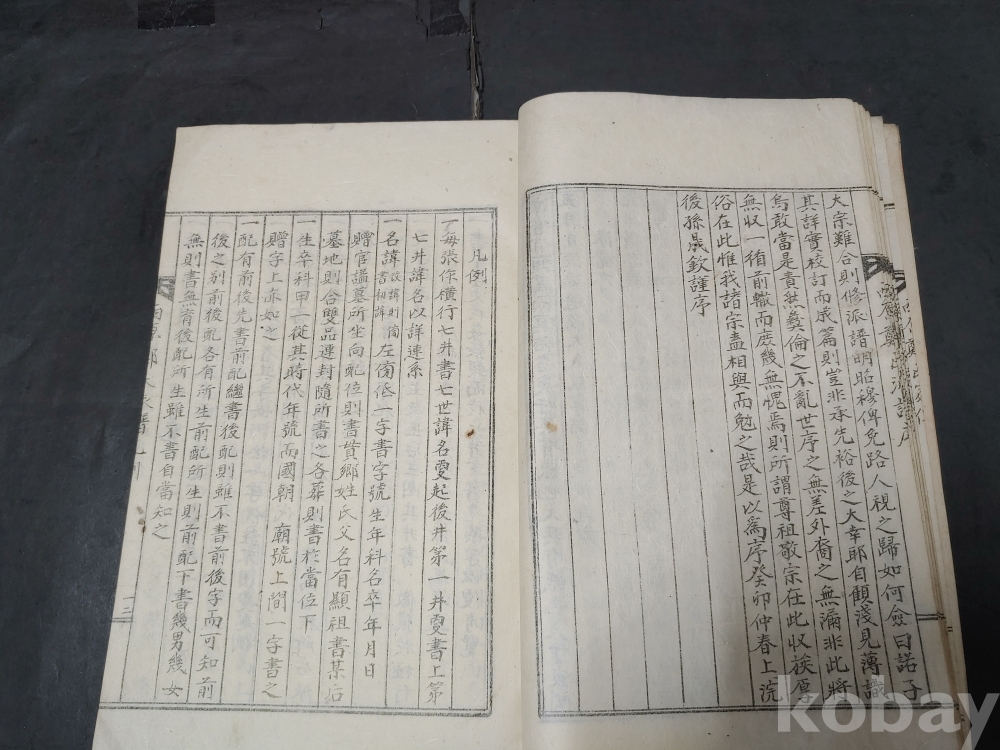 大宗難合則修派譜明昭穆俾免路人視之歸如何僉曰諾子
其詳實校訂而成篇則豈非承先裕後之大幸耶自顧淺見薄識
烏敢當是責然彝倫之不亂世序之無差外裔之無漏非此將
無収一循前轍而庶幾無愧焉則所謂尊祖敬宗在此収族厚
俗在此惟我諸宗盍相與而勉之哉是以爲序癸卯仲春上浣
後孫晟欽謹序
凡例
一每張作橫行七井書七世諱名更起後井第一井更書上第
七井諱名以詳連系
一名諱改諱則傍書初諱左傍低一字書字號生年科名卒年月日
贈官謚墓所坐向配位則書貫鄕姓氏父名有顯祖書某后
墓地則合雙品連封隨所書之各葬則書於當位下
一生卒科甲一從其時代年號而國朝廟號上間一字書之
贈字上亦如之
一配有前後先書前配繼書後配則雖不書前後字而可知前
後之別前後配各有所生前配所生則前配下書幾男幾女
無則書無育後配所生雖不書自當知之
kobay